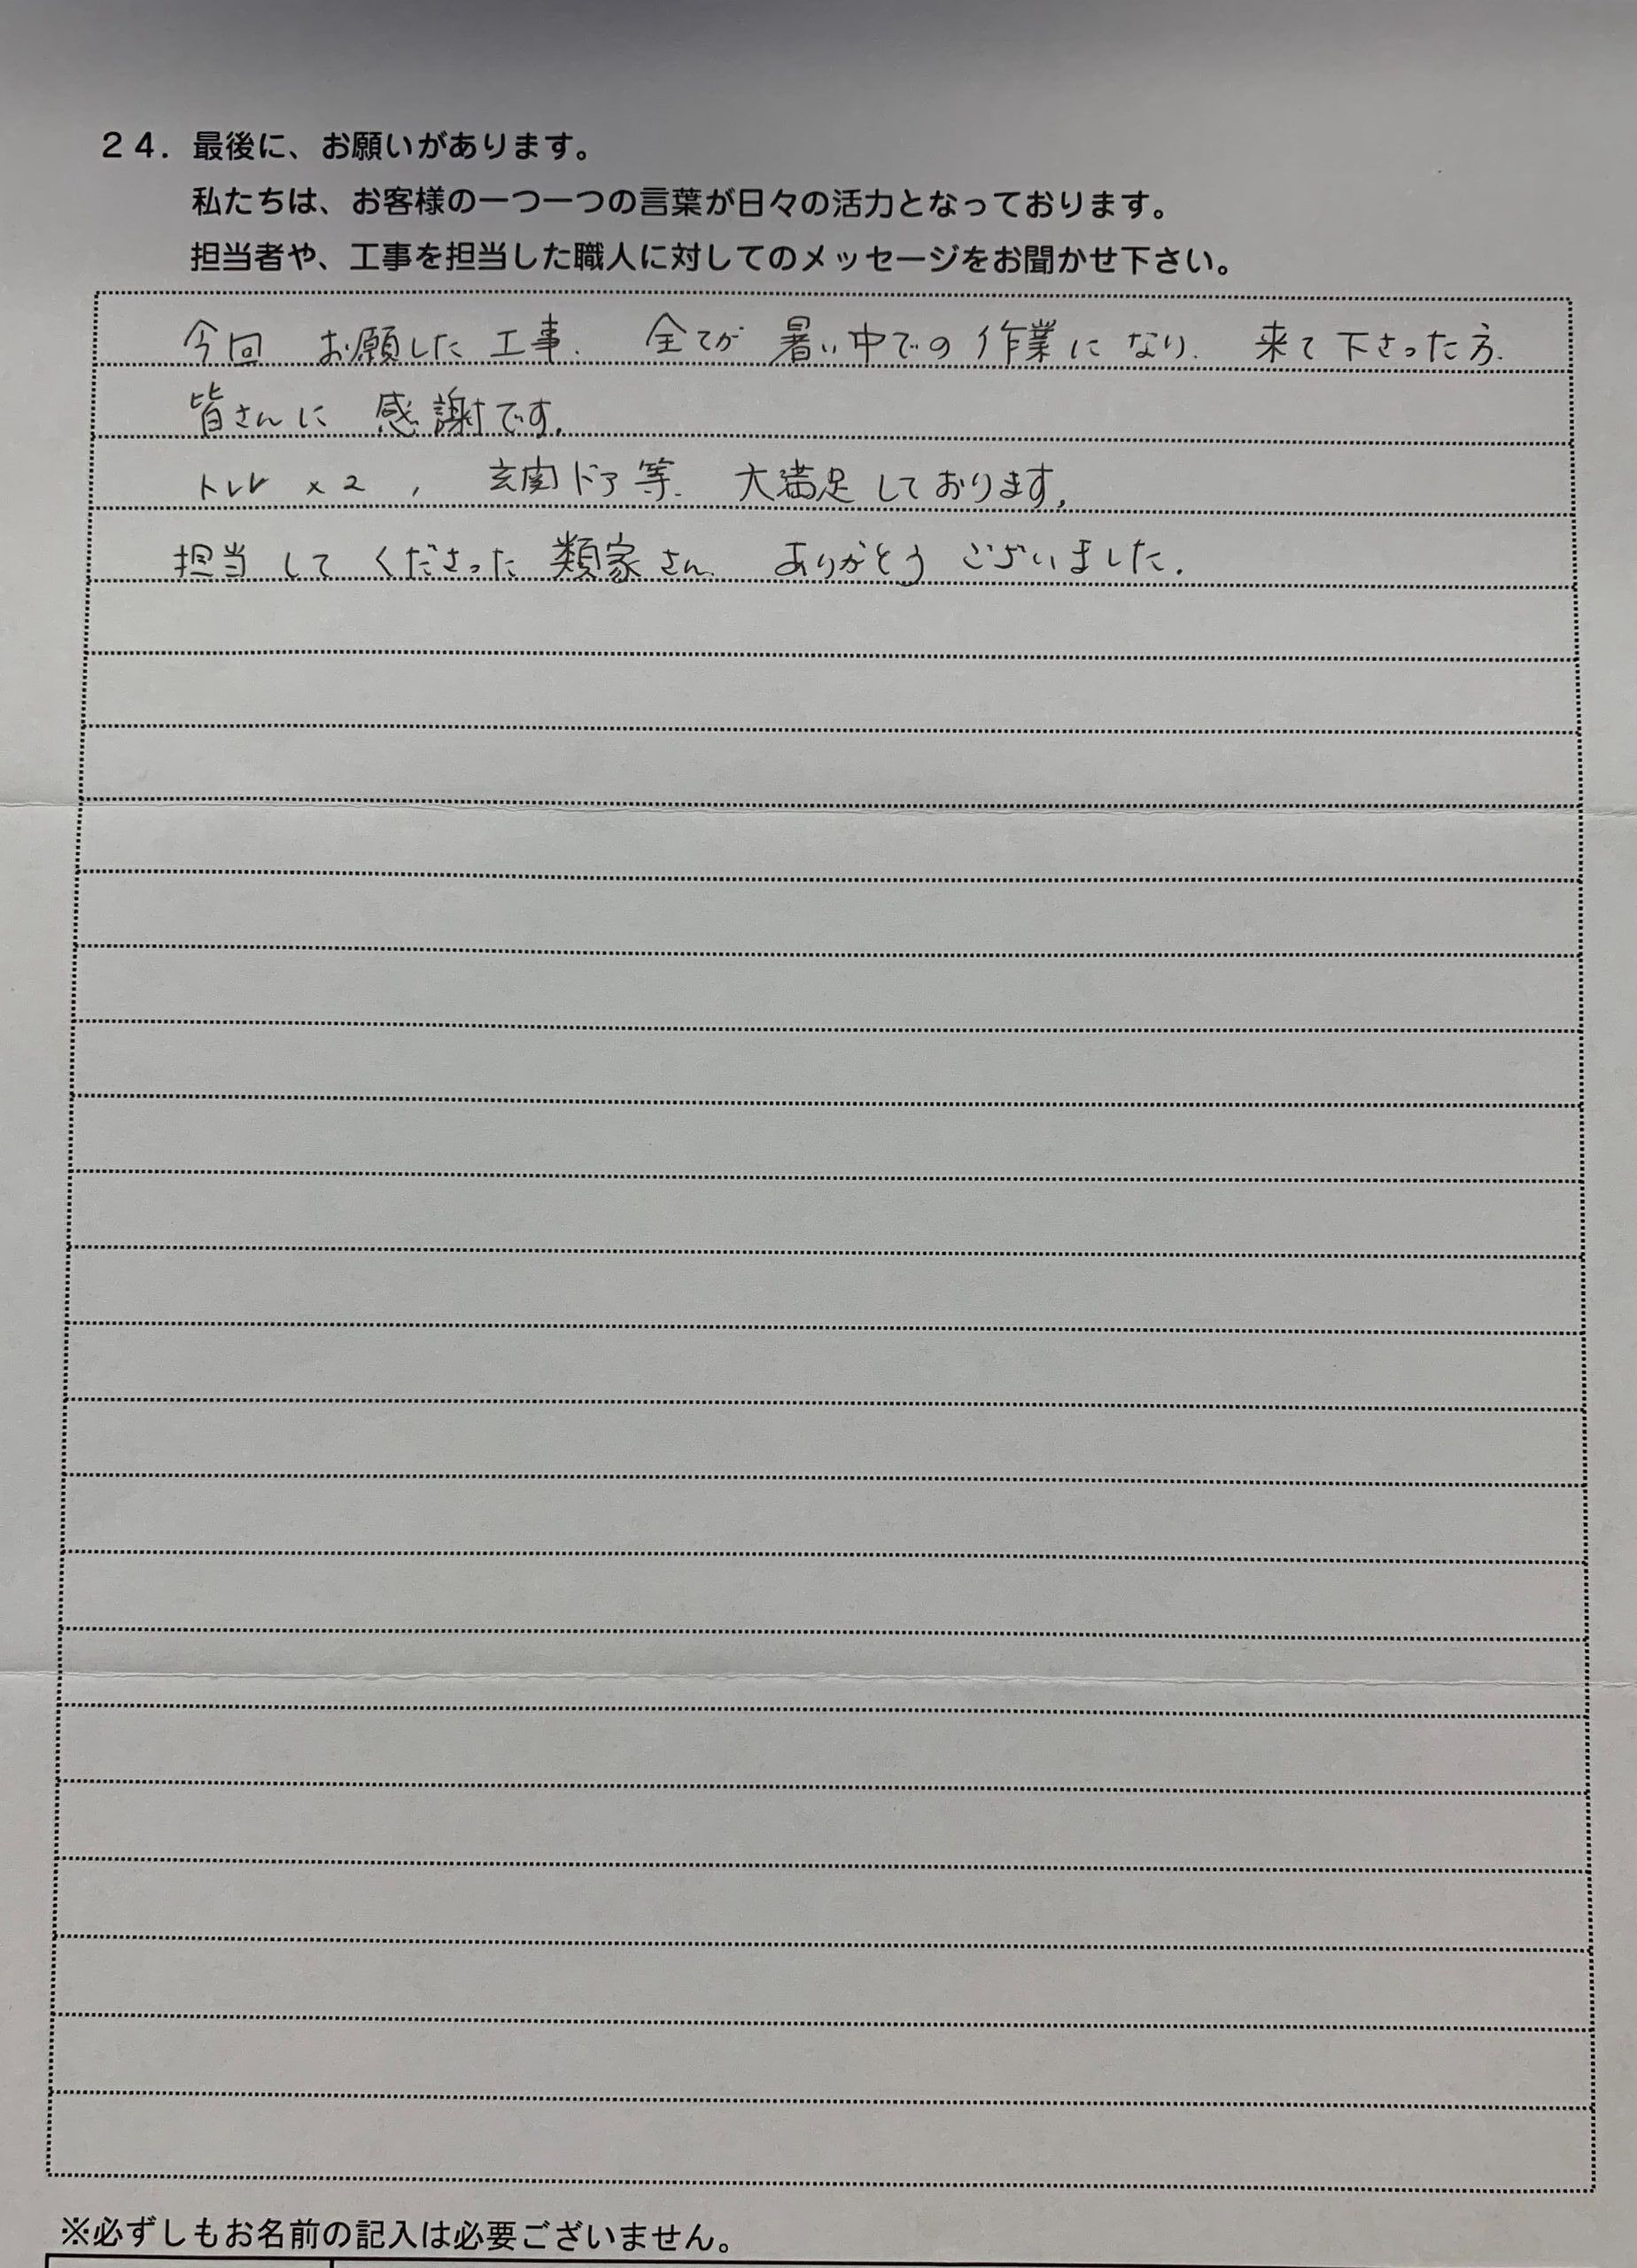 24．最後に、お願いがあります。
私たちは、お客様の一つ一つの言葉が日々の活力となっております。
担当者や、工事を担当した職人に対してのメッセージをお聞かせ下さい。
今回 お願した工事、全てが 暑い中での作業に なり、来て下さった方、
皆さんに 感謝です。
トイレ ×2 、 玄関ドア等、大満足しております。
担当してくださった 類家さん、ありがとう ございました。
※必ずしもお名前の記入は必要ございません。